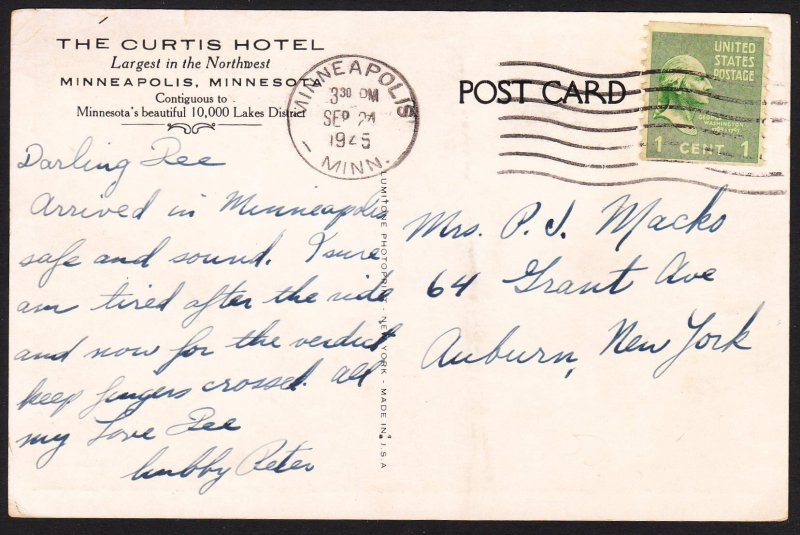 THE CURTIS HOTEL
Largest in the Northwest
MINNEAPOLIS, MINNESOTA
Contiguous to
Minnesota's beautiful 10,000 Lakes District
MINNEAPOLIS
3 30 PM
SEP 24
1945
MINN.
POST CARD
UNITED
STATES
POSTAGE
GEORGE
WASHINGTON
1789-1797
1 CENT 1
Darling Dee
Arrived in Minneapolis
safe and sound. I sure
am tired after the ride
and now for the verdict
keep fingers crossed. all
my Love Dee
hubby Peter
LUMITONE PHOTOPRINT - NEW YORK - MADE IN U.S.A
Mrs. P. J. Macko
64 Grant Ave
Auburn, New York